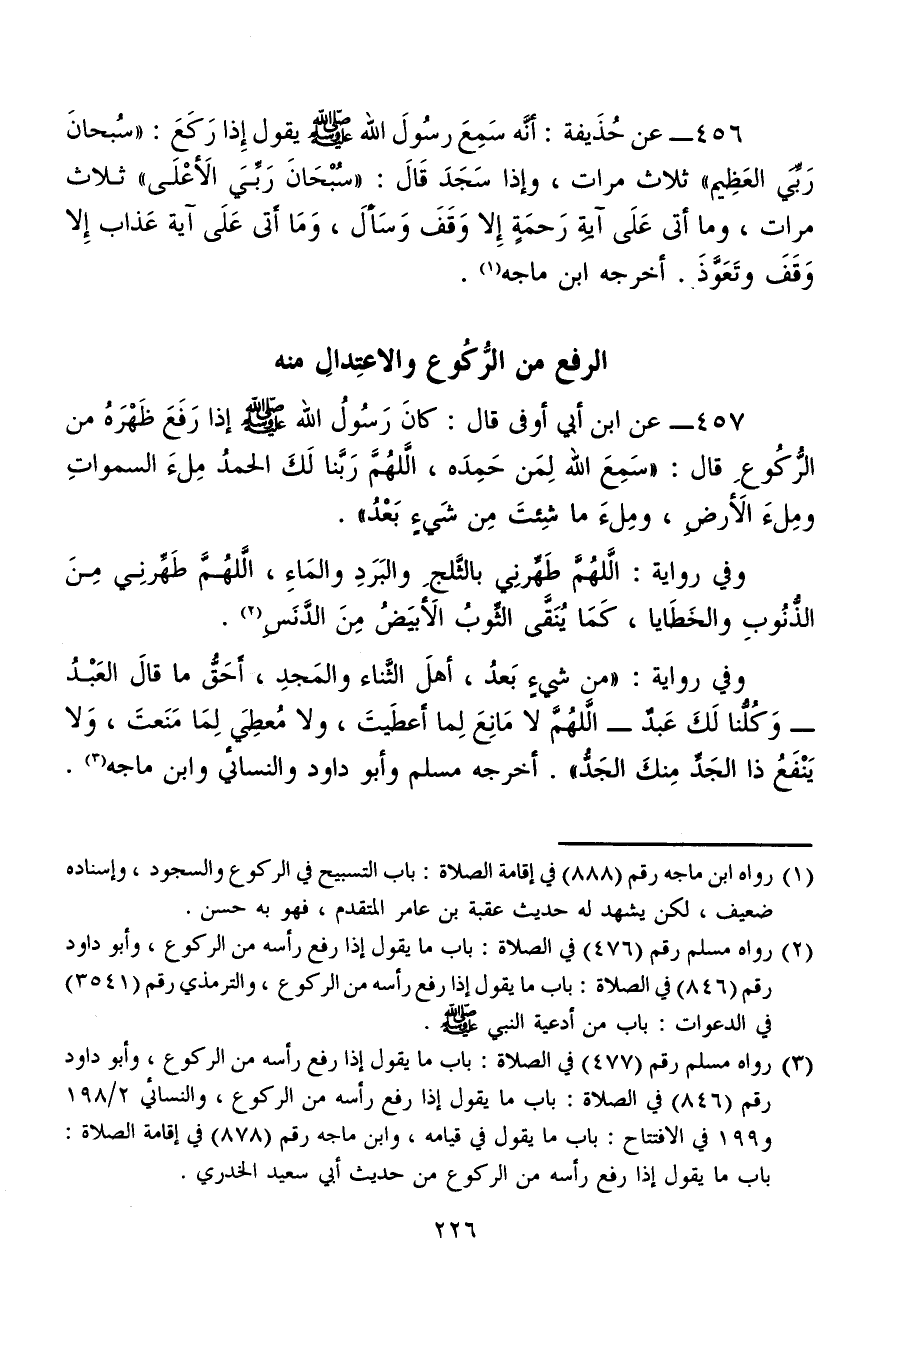 ٤٥٦ـ عن حُذَيفة : أنَّه سَمِعَ رسُولَ الله ﷺ يقول إِذا رَكَعَ : «سُبحانَ
رَبِّيَ العَظِيمِ» ثلاث مرات ، وإذا سَجَدَ قَالَ : «سُبْحَانَ رَبِّيَ الأَعْلَى» ثلاث
مرات ، وما أتى عَلَى آيةِ رَحمَةٍ إلا وَقَفَ وَسَألَ ، وَمَا أتى عَلَى آية عَذاب إلا
وَقَفَ وتَعَوَّذَ . أخرجه ابن ماجه(١) .
الرفع من الرُّكُوع والاعتِدالِ منه
٤٥٧ـ عن ابن أبي أوفى قال : كانَ رَسُولُ الله ﷺ إذا رَفَعَ ظَهْرَهُ من
الرُّكُوعِ قال : «سَمِعَ الله لِمَن حَمِدَه ، اللَّهمَّ رَبَّنا لَكَ الحمدُ مِلءَ السمواتِ
ومِلءَ الأرضِ ، ومِلءَ ما شِئتَ مِن شَيءٍ بَعْدُ» .
وفي رواية : اللَّهُمَّ طَهِّرنِي بالثَّلجِ والبَرَدِ والمَاءِ ، اللَّهُمَّ طَهِّرنِي مِنَ
الذُّنُوبِ والخَطَايا ، كَمَا يُنَقَّى الثَّوبُ الأبيَضُ مِنَ الدَّنَسِ(٢) .
وفي رواية : «من شيءٍ بَعدُ ، أهلَ الثَّناء والمَجدِ ، أَحَقُّ ما قالَ العَبْدُ
ـ وَكُلُّنا لَكَ عَبدٌ ـ اللَّهُمَّ لا مَانِعَ لِما أعطَيتَ ، ولا مُعطِيَ لِمَا مَنَعتَ ، وَلا
يَنْفَعُ ذا الجَدِّ مِنكَ الجَدُّ» . أخرجه مسلم وأبو داود والنسائي وابن ماجه(٣) .
(١) رواه ابن ماجه رقم (٨٨٨) في إقامة الصلاة : باب التسبيح في الركوع والسجود ، وإسناده
ضعيف ، لكن يشهد له حديث عقبة بن عامر المتقدم ، فهو به حسن .
(٢) رواه مسلم رقم (٤٧٦) في الصلاة : باب ما يقول إذا رفع رأسه من الركوع ، وأبو داود
رقم (٨٤٦) في الصلاة : باب ما يقول إذا رفع رأسه من الركوع ، والترمذي رقم (٣٥٤١)
في الدعوات : باب من أدعية النبي ﷺ .
(٣) رواه مسلم رقم (٤٧٧) في الصلاة : باب ما يقول إذا رفع رأسه من الركوع ، وأبو داود
رقم (٨٤٦) في الصلاة : باب ما يقول إذا رفع رأسه من الركوع ، والنسائي ١٩٨/٢
و١٩٩ في الافتتاح : باب ما يقول في قيامه ، وابن ماجه رقم (٨٧٨) في إقامة الصلاة :
باب ما يقول إذا رفع رأسه من الركوع من حديث أبي سعيد الخدري .
٢٢٦